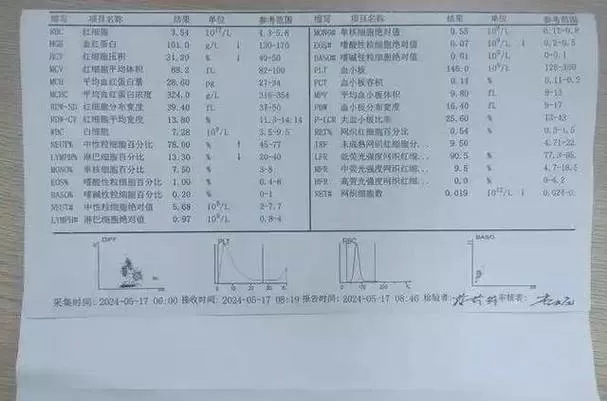 缩写 项目名称 结果 单位 参考范围
RBC 红细胞 3.54 10¹²/L 4.3-5.8
HGB 血红蛋白 101.0 g/L ↓ 130-175
HCT 红细胞压积 31.20 % ↓ 40-50
MCV 红细胞平均体积 88.2 fL 82-100
MCH 平均血红蛋白量 28.60 pg 27-34
MCHC 平均血红蛋白浓度 324.0 g/L 316-354
RDW-SD 红细胞分布宽度 39.40 fL 37-50
RDW-CV 红细胞平均宽度 13.80 % 11.3-14.14
WBC 白细胞 7.28 10⁹/L 3.5-9.5
NEUT% 中性粒细胞百分比 78.00 % ↑ 45-77
LYMPH% 淋巴细胞百分比 13.30 % ↓ 20-40
MONO% 单核细胞百分比 7.50 % 3-8
EOS% 嗜酸性粒细胞百分比 1.00 % 0.4-8
BASO% 嗜碱性粒细胞百分比 0.20 % 0-1
NEUT# 中性粒细胞绝对值 5.68 10⁹/L 2-7.7
LYMPH# 淋巴细胞绝对值 0.97 10⁹/L 0.8-4
缩写 项目名称 结果 单位 参考范围
MONO# 单核细胞绝对值 0.55 10⁹/L 0.12-0.8
EOS# 嗜酸性粒细胞绝对值 0.07 10⁹/L ↓
嗜碱性粒细胞绝对值 0.01 10⁹/L 0-0.1
PLT 血小板 145.0 10⁹/L
PCT 血小板容积 0.14 % 0.11-0.2
MPV 平均血小板体积 9.80 fL 9-13
PDW 血小板分布宽度 16.40 fL 9-17
P-LCR 大血小板比率 25.60 % 13-43
RET% 网织红细胞百分比 0.54 %
IRF 未成熟网织红细胞分 9.50 4.71-22.
LFR 低荧光强度网织红细 90.5 %
MFR 中荧光强度网织红细 9.5 % 4.7-18.5
HFR 高荧光强度网织红细 0.0 %
RET# 网织细胞数 0.019 10¹²/L ↓
DIFF PLT RBC BASO
10 20 30 fL 100 200 fL
采集时间: 2024-05-17 06:00 接收时间: 2024-05-17 08:19 报告时间: 2024-05-17 08:46 检验者: 审核者: